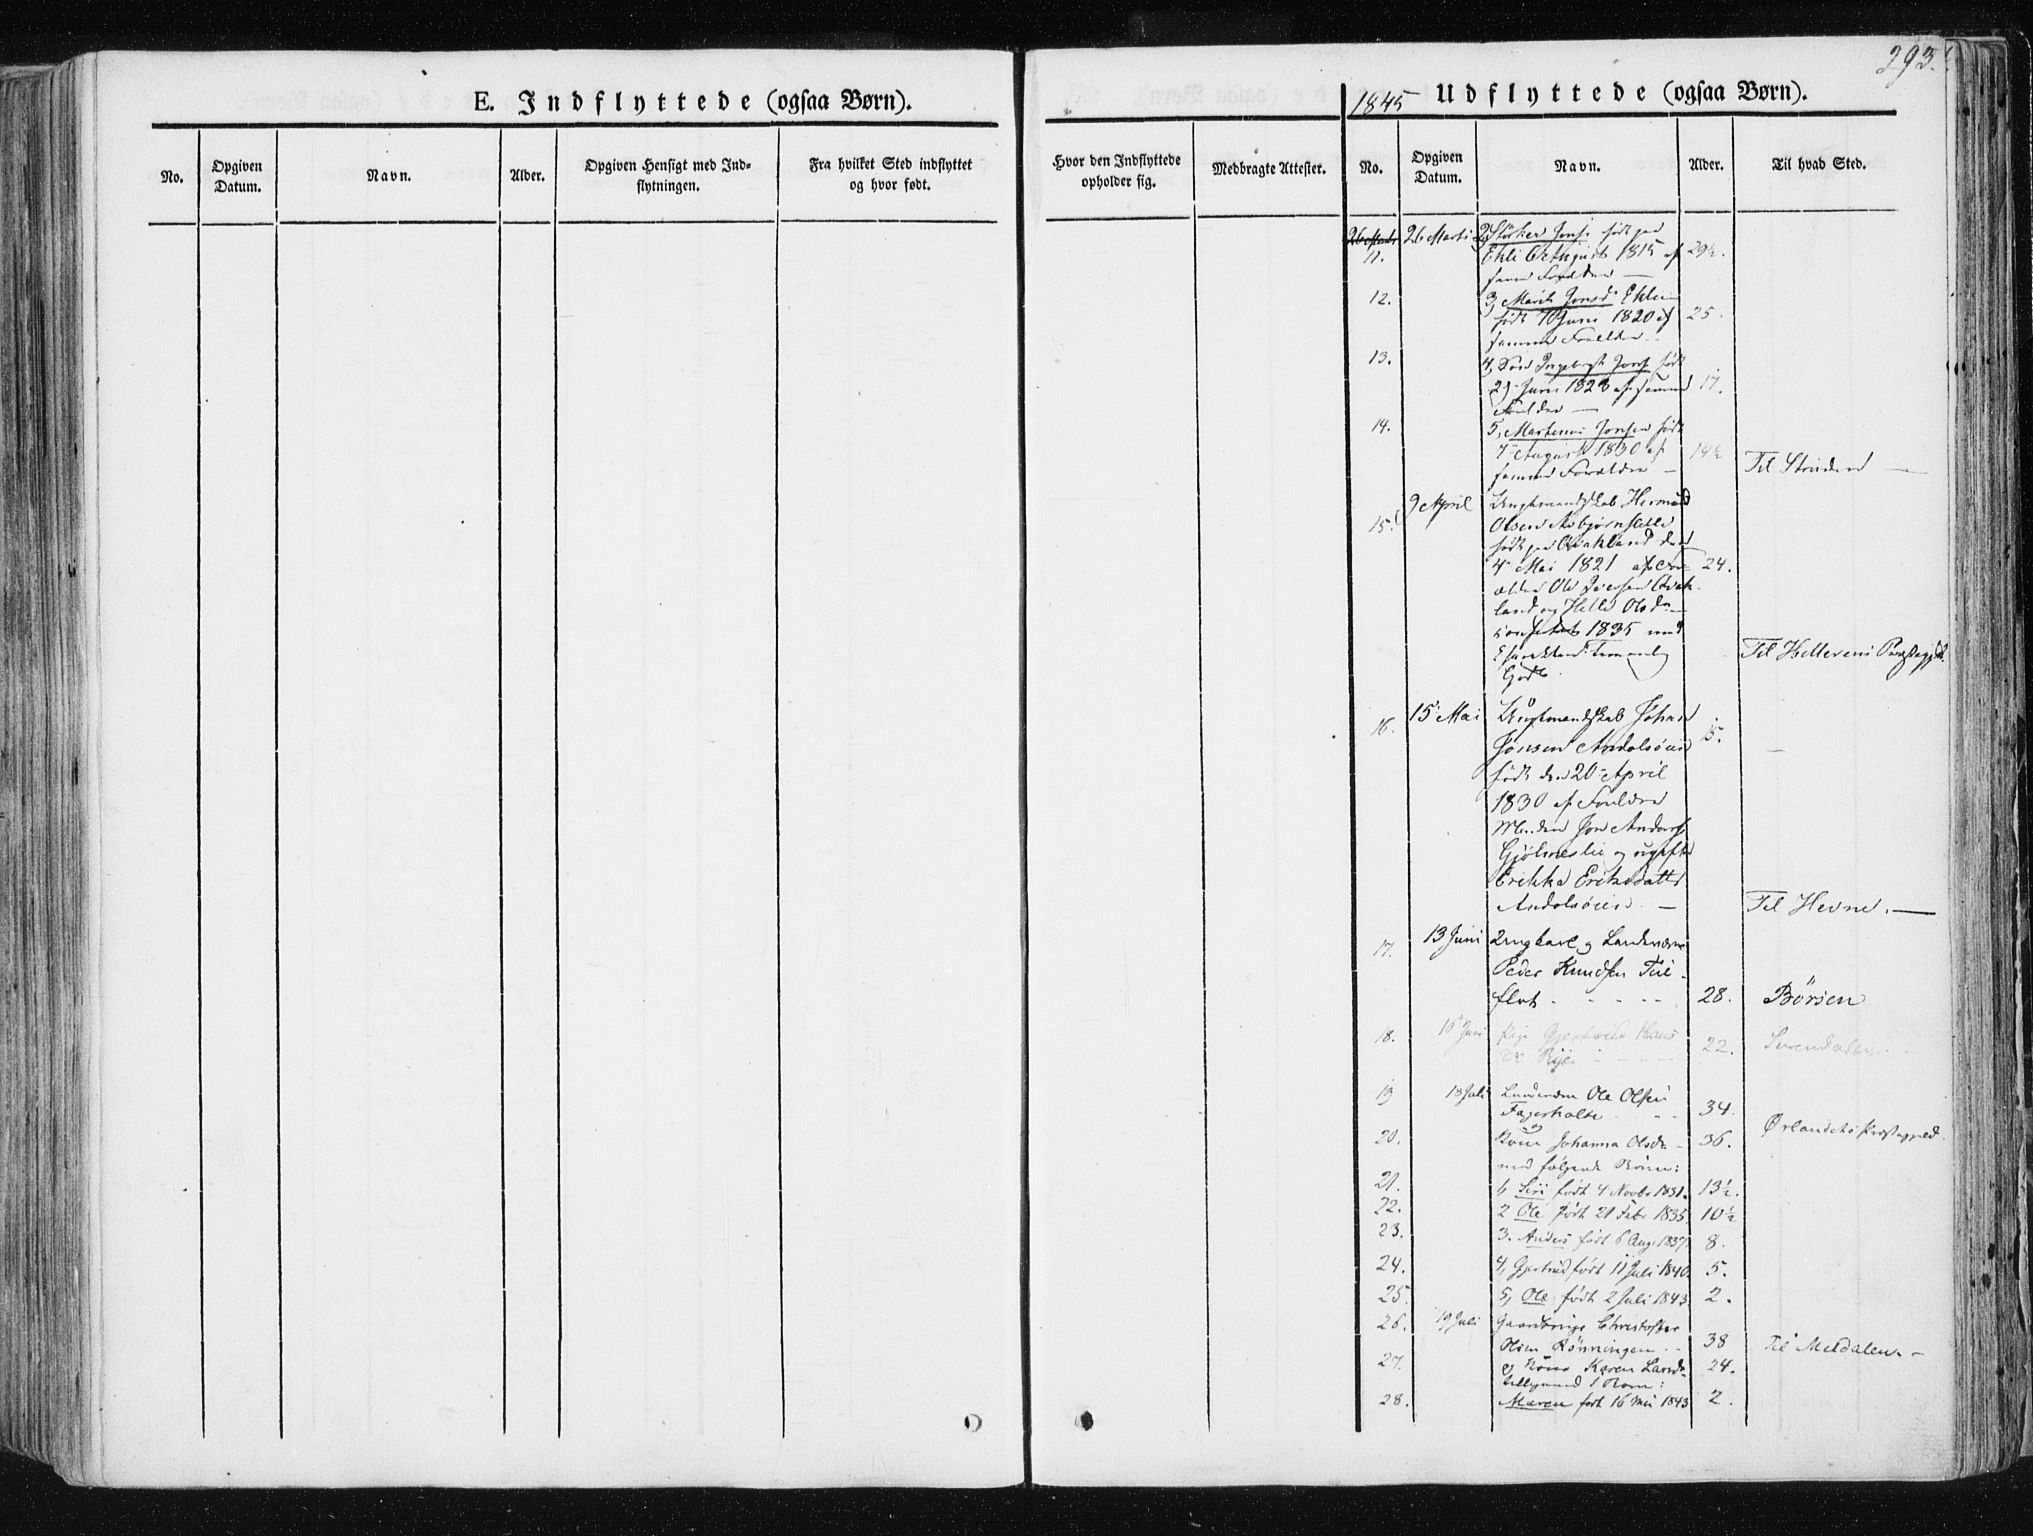 293.
E. Indflyttede (ogsaa Børn).
1845 Udflyttede (ogsaa Børn).
No.
Opgiven Datum.
Navn.
Alder.
Opgiven Hensigt med Indflytningen.
Fra hvilket Sted indflyttet og hvor født.
Hvor den Indflyttede opholder sig.
Medbragte Attester.
No.
Opgiven Datum.
Navn.
Alder.
Til hvad Sted.
11. 26 Marti 2, Størker Jons. født paa
August 1815 af 29½.
samme Forældre —
12. 3, Marit Jonsd. Ehli
født Juni 1820 af 25.
samme Forældre
13. 4, Ingebrgt Jons. født
29 Juni 1828 af samme 17.
Forældre —
14. 5, Martinus Jonsen født
4 August 1830 af 14½
samme Forældre — Til Strinden —
15. 9 April Ungkmandskab
Olsen Asbjørnslette
født paa Qvakland den
4 Mai 1821 af 24.
Ole Qvak-
land og Olsda
1835 med
Godt. Til Præstegjeld.
16. 15 Mai Ungkmandskab Johan 15.
Jonsen Andolsøien
født den 20 April
1830 af Forældre
Jon Anders.
Gjølmeslie og ugift
Erikka Eriksdatter
Andolsøien. — Til Hevne. —
17. 13 Juni Ungkarl og Landeværn
Peder Knudsen Tei-
flot 28. Børsen
18. 15 Juni Pige Gjertrud Hans
Dr Rye 22. Surendalen
19 18 Juli Landeværn Ole Olsen
Fagerholte 34.
20. Kone Johanna Olsda 36. Ørlandets Præstegjeld.
med følgende Børn:
21. 1, Siri født 4 Novbr 1831. 13½.
22. 2 Ole født 21 Febr 1835 10½
23. 3. Anders født 6 Aug. 1837. 8.
24. 4, Gjertrud født 11 Juli 1840. 5.
25. 5, Ole født 2 Juli 1843. 2.
26. 19 Juli Christopher
Rønningen 38 Til Meldalen. —
27. og Kone Karen Larsd. 24.
1 Barn:
28. Maren født 16 Mai 1843 2.